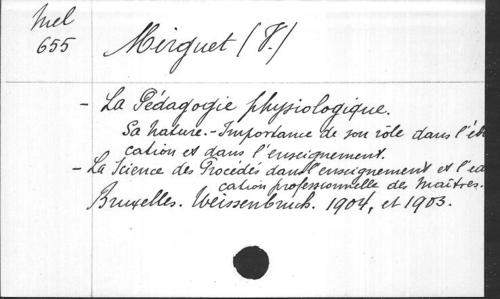 Mel
655
Mirguet (V.)
- La Pédagogie physiologique.
Sa nature. - Importance de son rôle dans l'édu
cation et dans l'enseignement.
- La Science des Procédés dans l'enseignement et l'édu
cation professionnelle des Maîtres.
Bruxelles. Weissenbruch. 1904, et 1903.